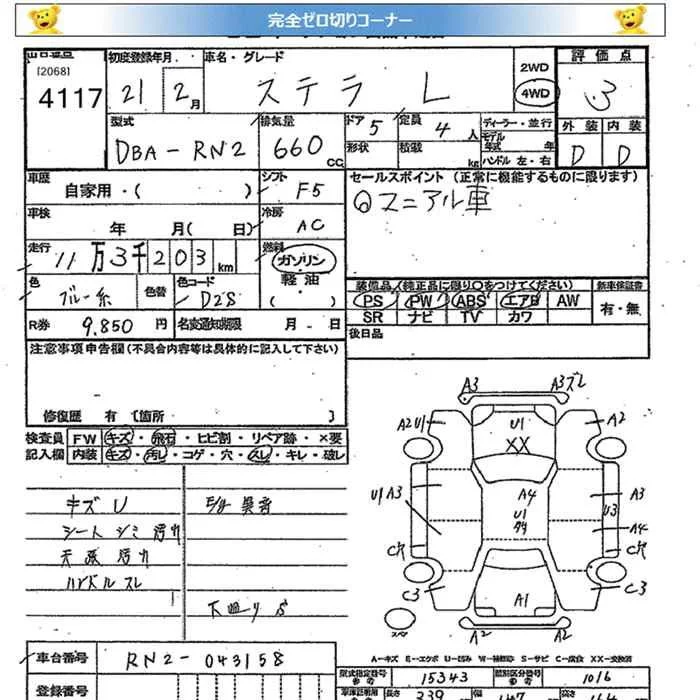 完全ゼロ切りコーナー
[2068]
4117
初度登録年月 21 2月
車名・グレード ステラ L
2WD
4WD
評価点 3
型式 DBA-RN2
排気量 660 CC
ドア 5
形状
定員 4人
積載 kg
ディーラー・並行
モデル年式 年
ハンドル 左・右
外装 D
内装 D
車歴 自家用・( )
シフト F5
セールスポイント (正常に機能するものに限ります)
マニアル車
車検 年 月(日)
冷房 AC
走行 11万3千203km
燃料 ガソリン
軽油
( )
色 ブルー系
色替
色コード D28
装備品(純正品に限り○をつけてください)
PS PW ABS エアB AW
SR ナビ TV カワ
新車保証書
有・無
R券 9.850円
名変通知期限 月 日
後日品
注意事項申告欄(不具合内容等は具体的に記入して下さい)
修復歴 有 [箇所 ]
検査員記入欄
FW キズ・飛石・ヒビ割・リペア跡・×要
内装 キズ・汚レ・コゲ・穴・スレ・キレ・破レ
キズ U
E/g 異音
シート シミ 汚れ
天張 汚れ
ハンドル スレ
下廻り S
A3 A3ズレ
A2 U1 U1 A2
XX
U1 A3 A4 A3
U1 U3
A4
C穴 C穴
C3 A1 C3
A2 A2
スペア
A-キズ E-エクボ U-凹み W-補修跡 S-サビ C-腐食 XX-交換済
車台番号 RN2-043158
型式指定番号 15343
類別区分番号 1016
登録番号
長さ 339
147
164